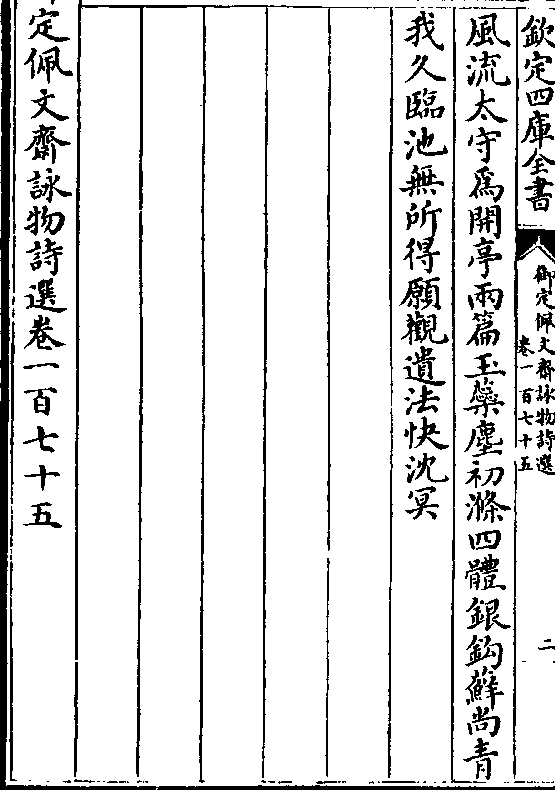 欽定四庫全書
御定佩文齋詠物詩選
卷一百七十五
二
風流太守為開亭兩篇玉蘂塵初滌四體銀鈎蘚尚青
我久臨池無所得願觀遺法快沈冥
定佩文齋詠物詩選卷一百七十五